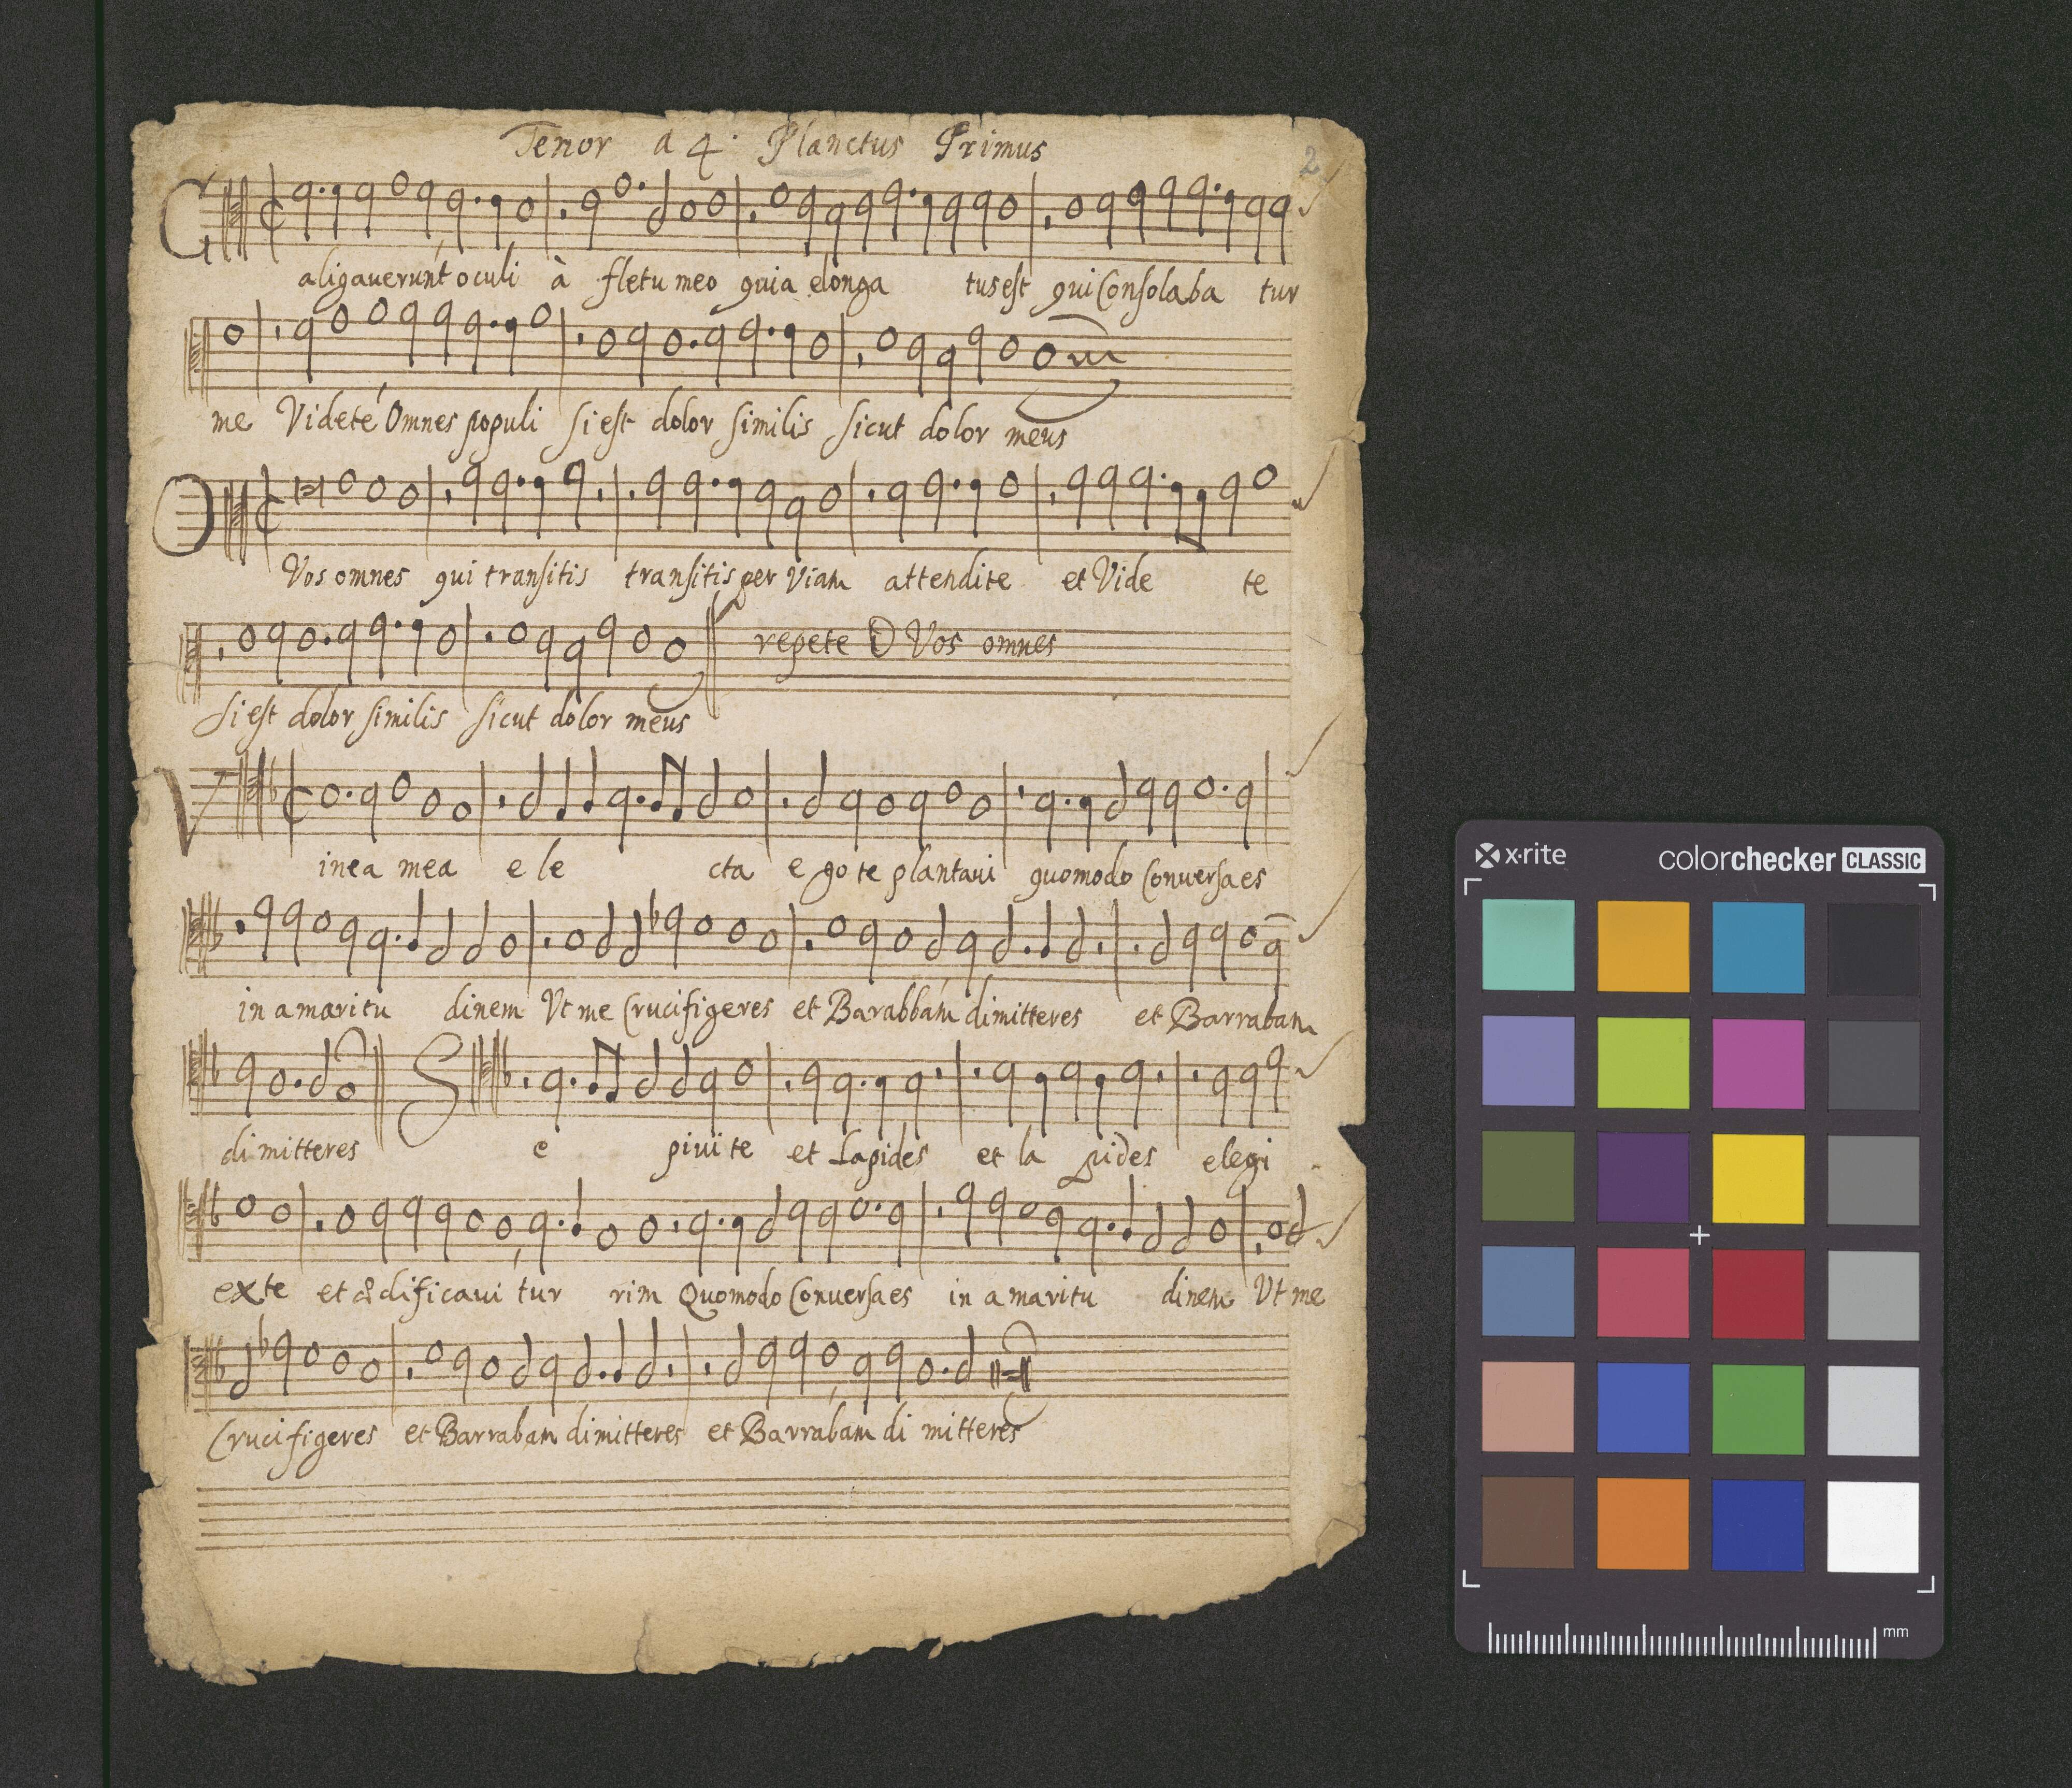 Tenor a 4. Planctus Primus
2
Caligauerunt oculi à fletu meo quia elonga tus est qui Consolaba tur
me Videte Omnes populi si est dolor similis sicut dolor meus
O Vos omnes qui transitis transitis per Viam attendite et Vide te
si est dolor similis sicut dolor meus repete O Vos omnes
Vinea mea e le cta e go te plantaui quomodo Conuersa es
in a maritu dinem Vt me Crucifigeres et Barabbam dimitteres et Barrabam
di mitteres Se piui te et Lapides et la pides elegi
ex te et ædificaui tur rim Quomodo Conuersa es in a maritu dinem Vt me
Crucifigeres et Barrabam dimitteres et Barrabam di mitteres
x·rite colorchecker CLASSIC
mm